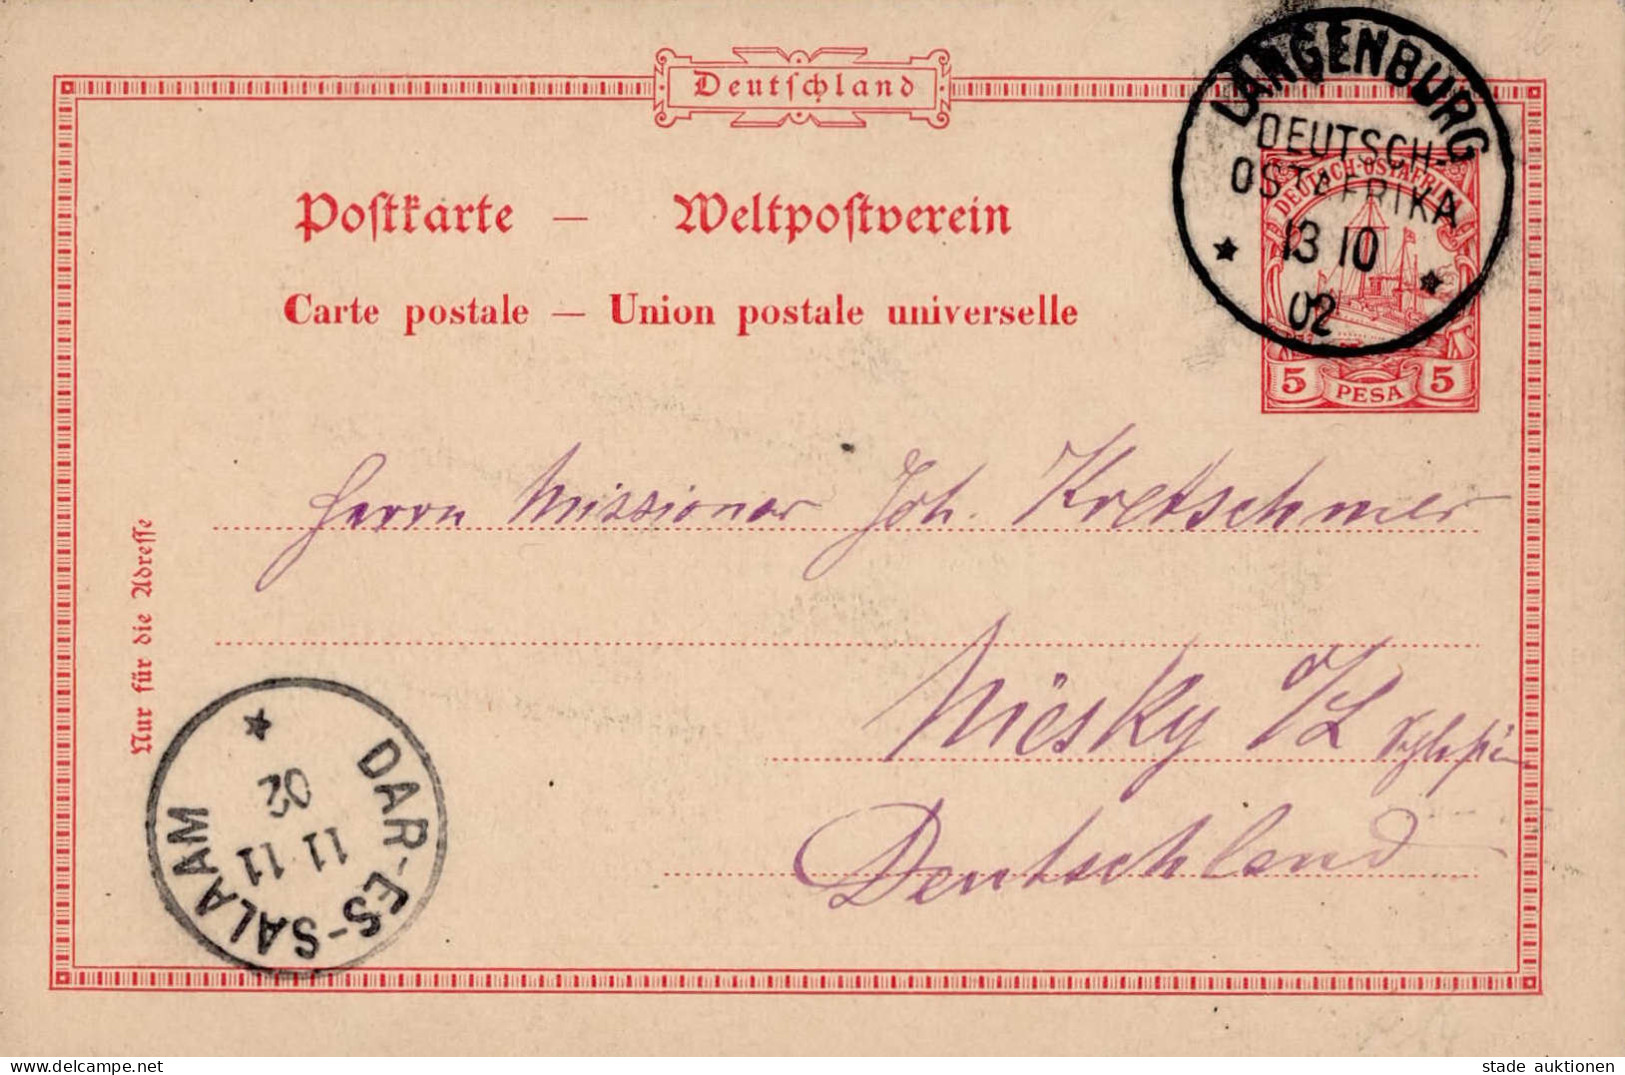 Deutschland
LANGENBURG
DEUTSCH-
OSTAFRIKA
13 10
02
DEUTSCH-OSTAFRIKA
5 PESA 5
Postkarte — Weltpostverein
Carte postale — Union postale universelle
Nur für die Adresse
Herrn Missionar Joh. Kretschmer
Niesky O/L Schlesien
Deutschland
DAR-ES-SALAAM
11 11
02
www.delcampe.net
stade auktionen